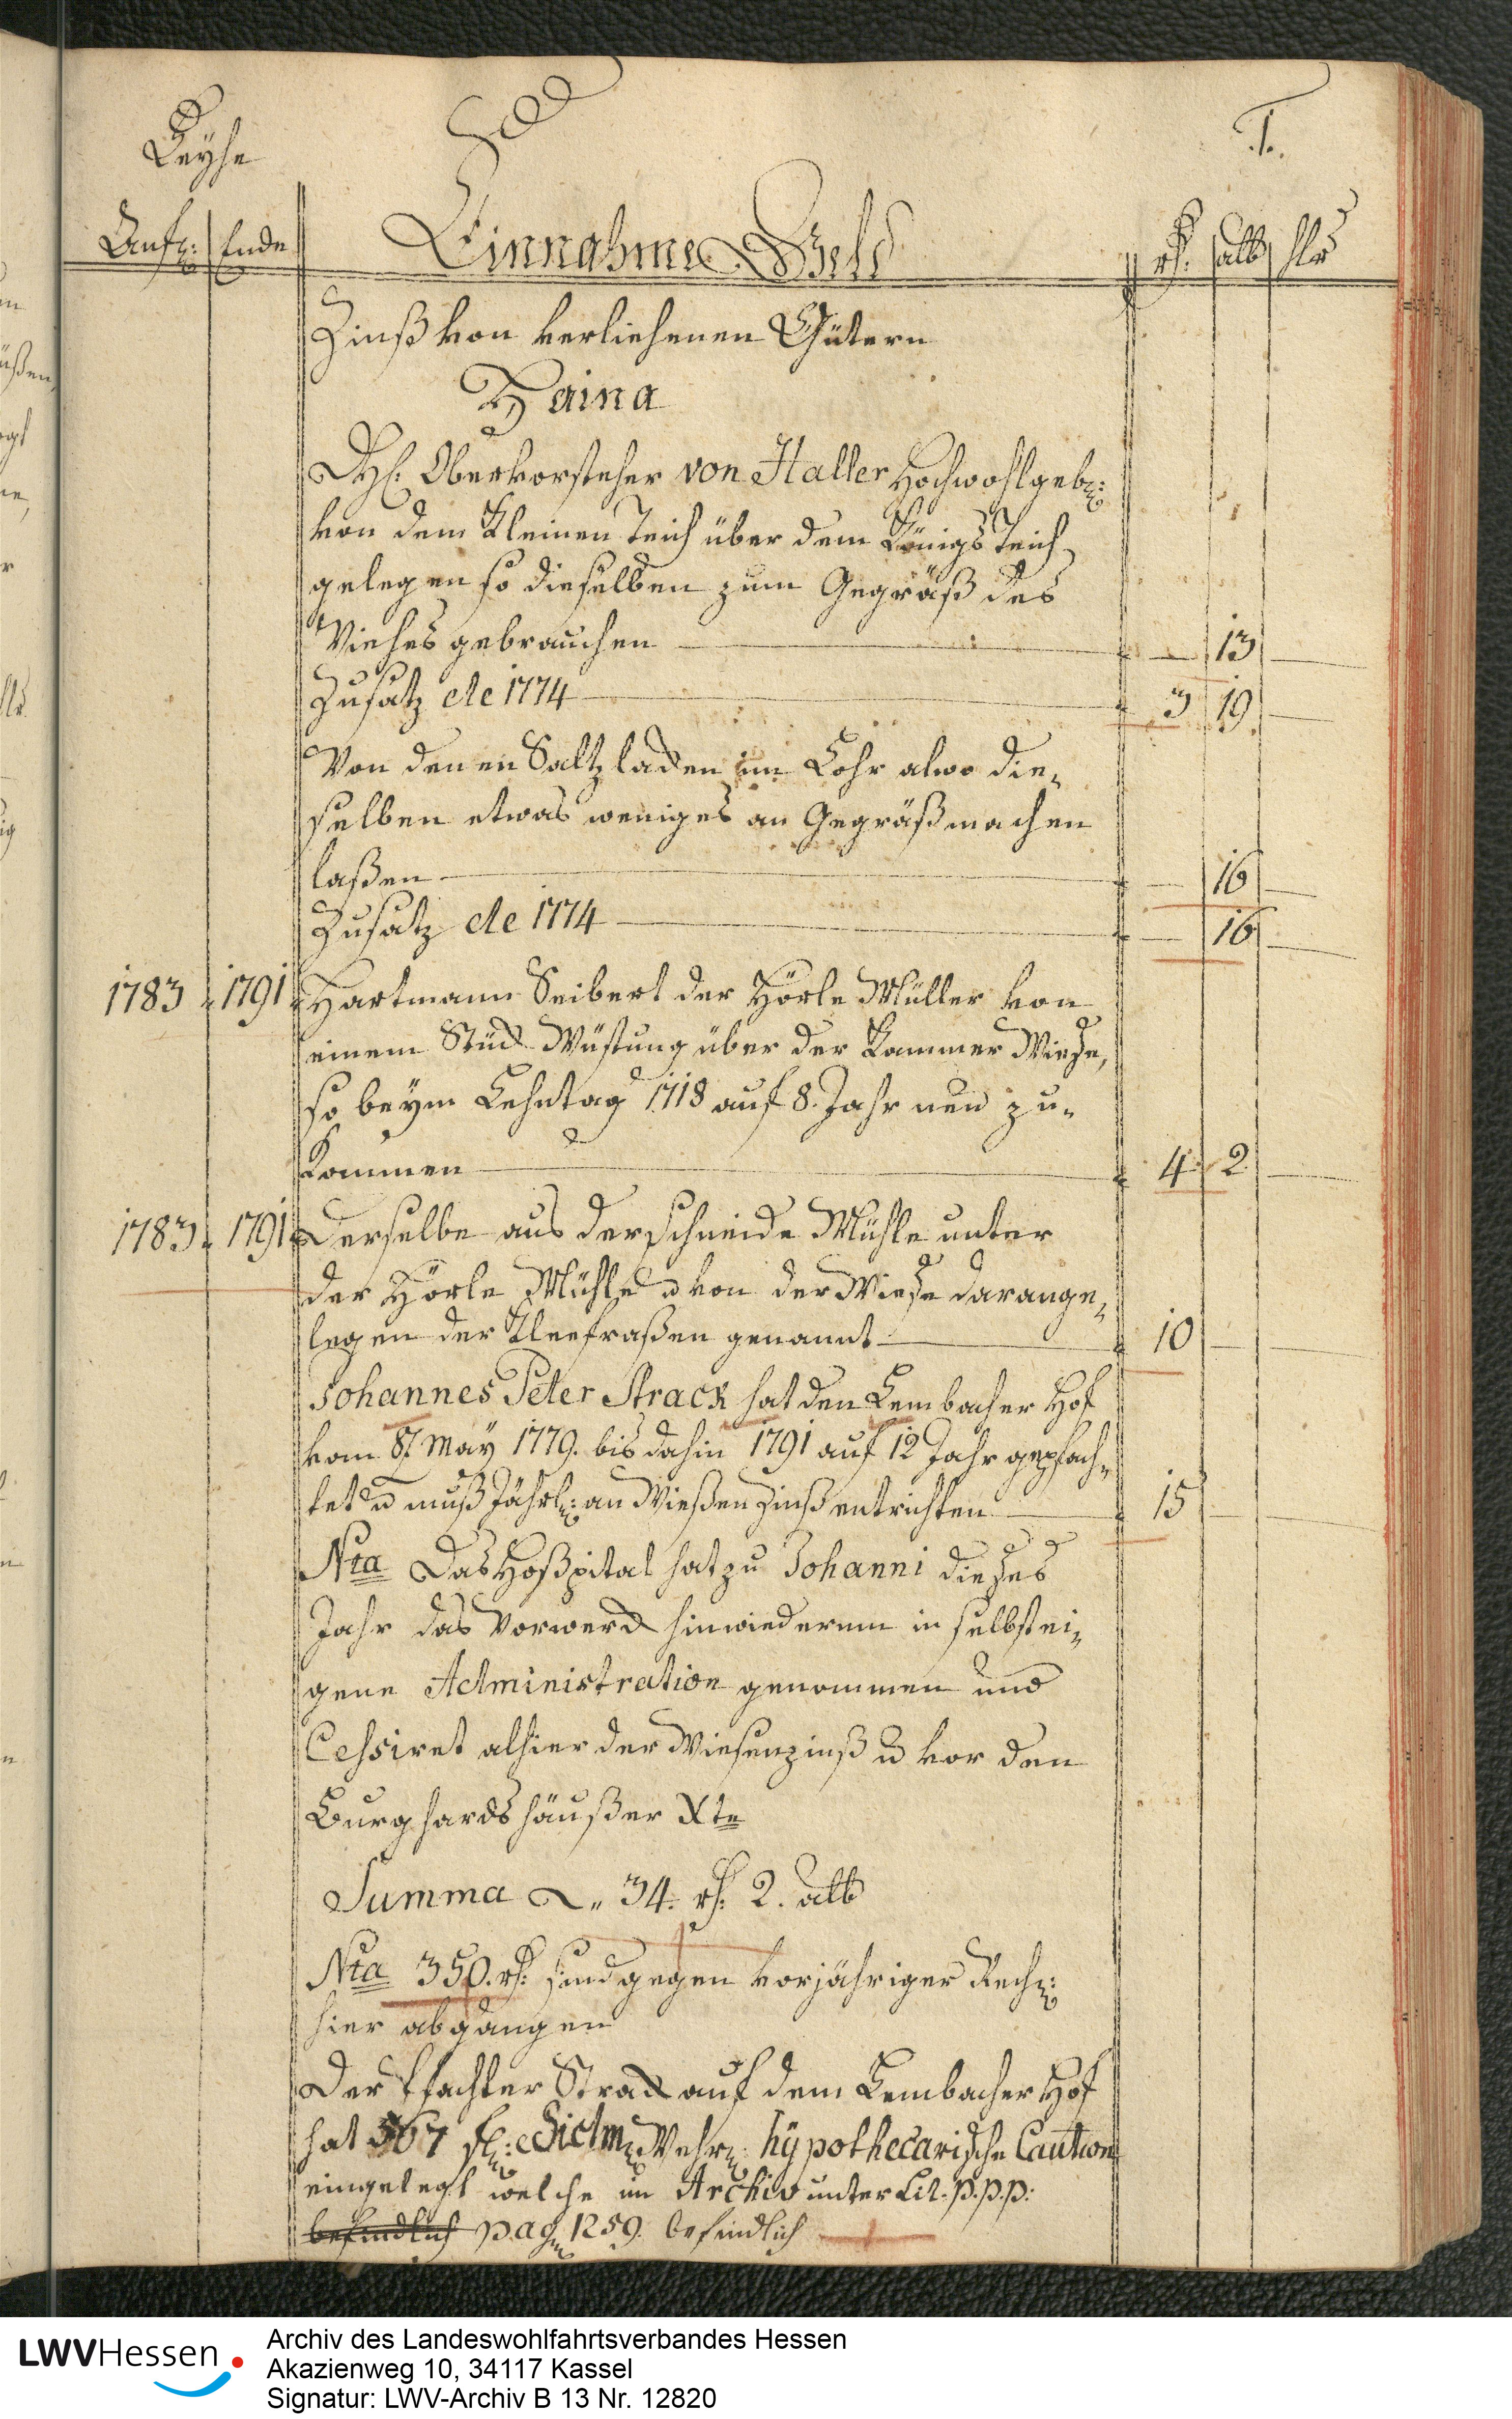 Leyhe
1.
Anf: Ende
Einnahme Geld
rh: alb hlr
Zinß von verliehenen Gütern
Haina
H: Obervorsteher von Haller Hochwohlgeb:
von dem kleinen Teich über dem Königs Teich
gelegen so dieselben zum Gegräß des
Viehes gebrauchen — 13 —
Zusatz de 1774 3 19. —
Von denen Saltzladen im Lohr alwo die„
selben etwas weniges an Gegräß machen
laßen — 16 —
Zusatz de 1774 — 16 —
1783 „ 1791 Hartmann Seibert der Hörle Müller von
einem Stück Wüstung über der Kammer Wiese,
so beym Lehntag 1718 auf 8. Jahr neu zu„
kommen 4 2 —
1783 „ 1791 Derselbe aus der Schneide Mühle unter
der Hörle Mühle u von der Wiese darange„
legen der Kleefraßen genannt 10 — —
Johannes Peter Strack hat den Lembacher Hof
vom May 1779. bis dahin 1791 auf 12 Jahr gepfach„
tet u muß Jährl: an Wießen Zinß entrichten 15 — —
Nta Das Hoßpital hat zu Johanni dieses
Jahr das Vorwerck hinwiederum in selbst ei„
gene Administration genommen und
Cessiret alhier der Wiesenzinß u vor den
Burghardshäußer Xte
Summa 34. rh: 2. alb
Nta 350. rh: sind gegen vorjähriger Rech:
hier abgangen
Der Pfachter Strack auf dem Lembacher Hof
hat 567 fl: Wehr: hypothecarische Caution
eingelegt welche im Archiv unter Lit. p. p. p:
befindlich pag 1259. befindlich
LWVHessen
Archiv des Landeswohlfahrtsverbandes Hessen
Akazienweg 10, 34117 Kassel
Signatur: LWV-Archiv B 13 Nr. 12820